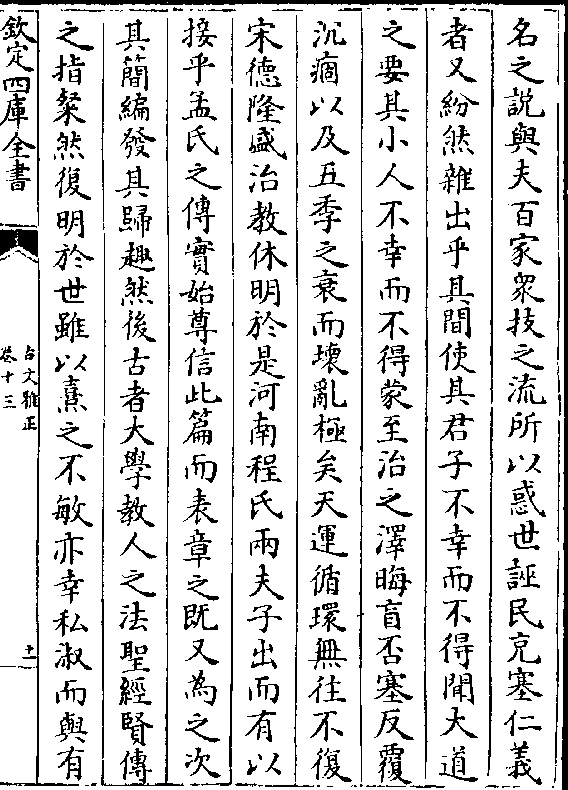 名之說與夫百家衆技之流所以惑世誣民充塞仁義
者又紛然雜出乎其間使其君子不幸而不得聞大道
之要其小人不幸而不得蒙至治之澤晦盲否塞反覆
沉痼以及五季之衰而壞亂極矣天運循環無往不復
宋德隆盛治教休明於是河南程氏兩夫子出而有以
接乎孟氏之傳實始尊信此篇而表章之既又為之次
其簡編發其歸趣然後古者大學教人之法聖經賢傳
之指粲然復明於世雖以熹之不敏亦幸私淑而與有
欽定四庫全書
古文雅正
卷十三
十一